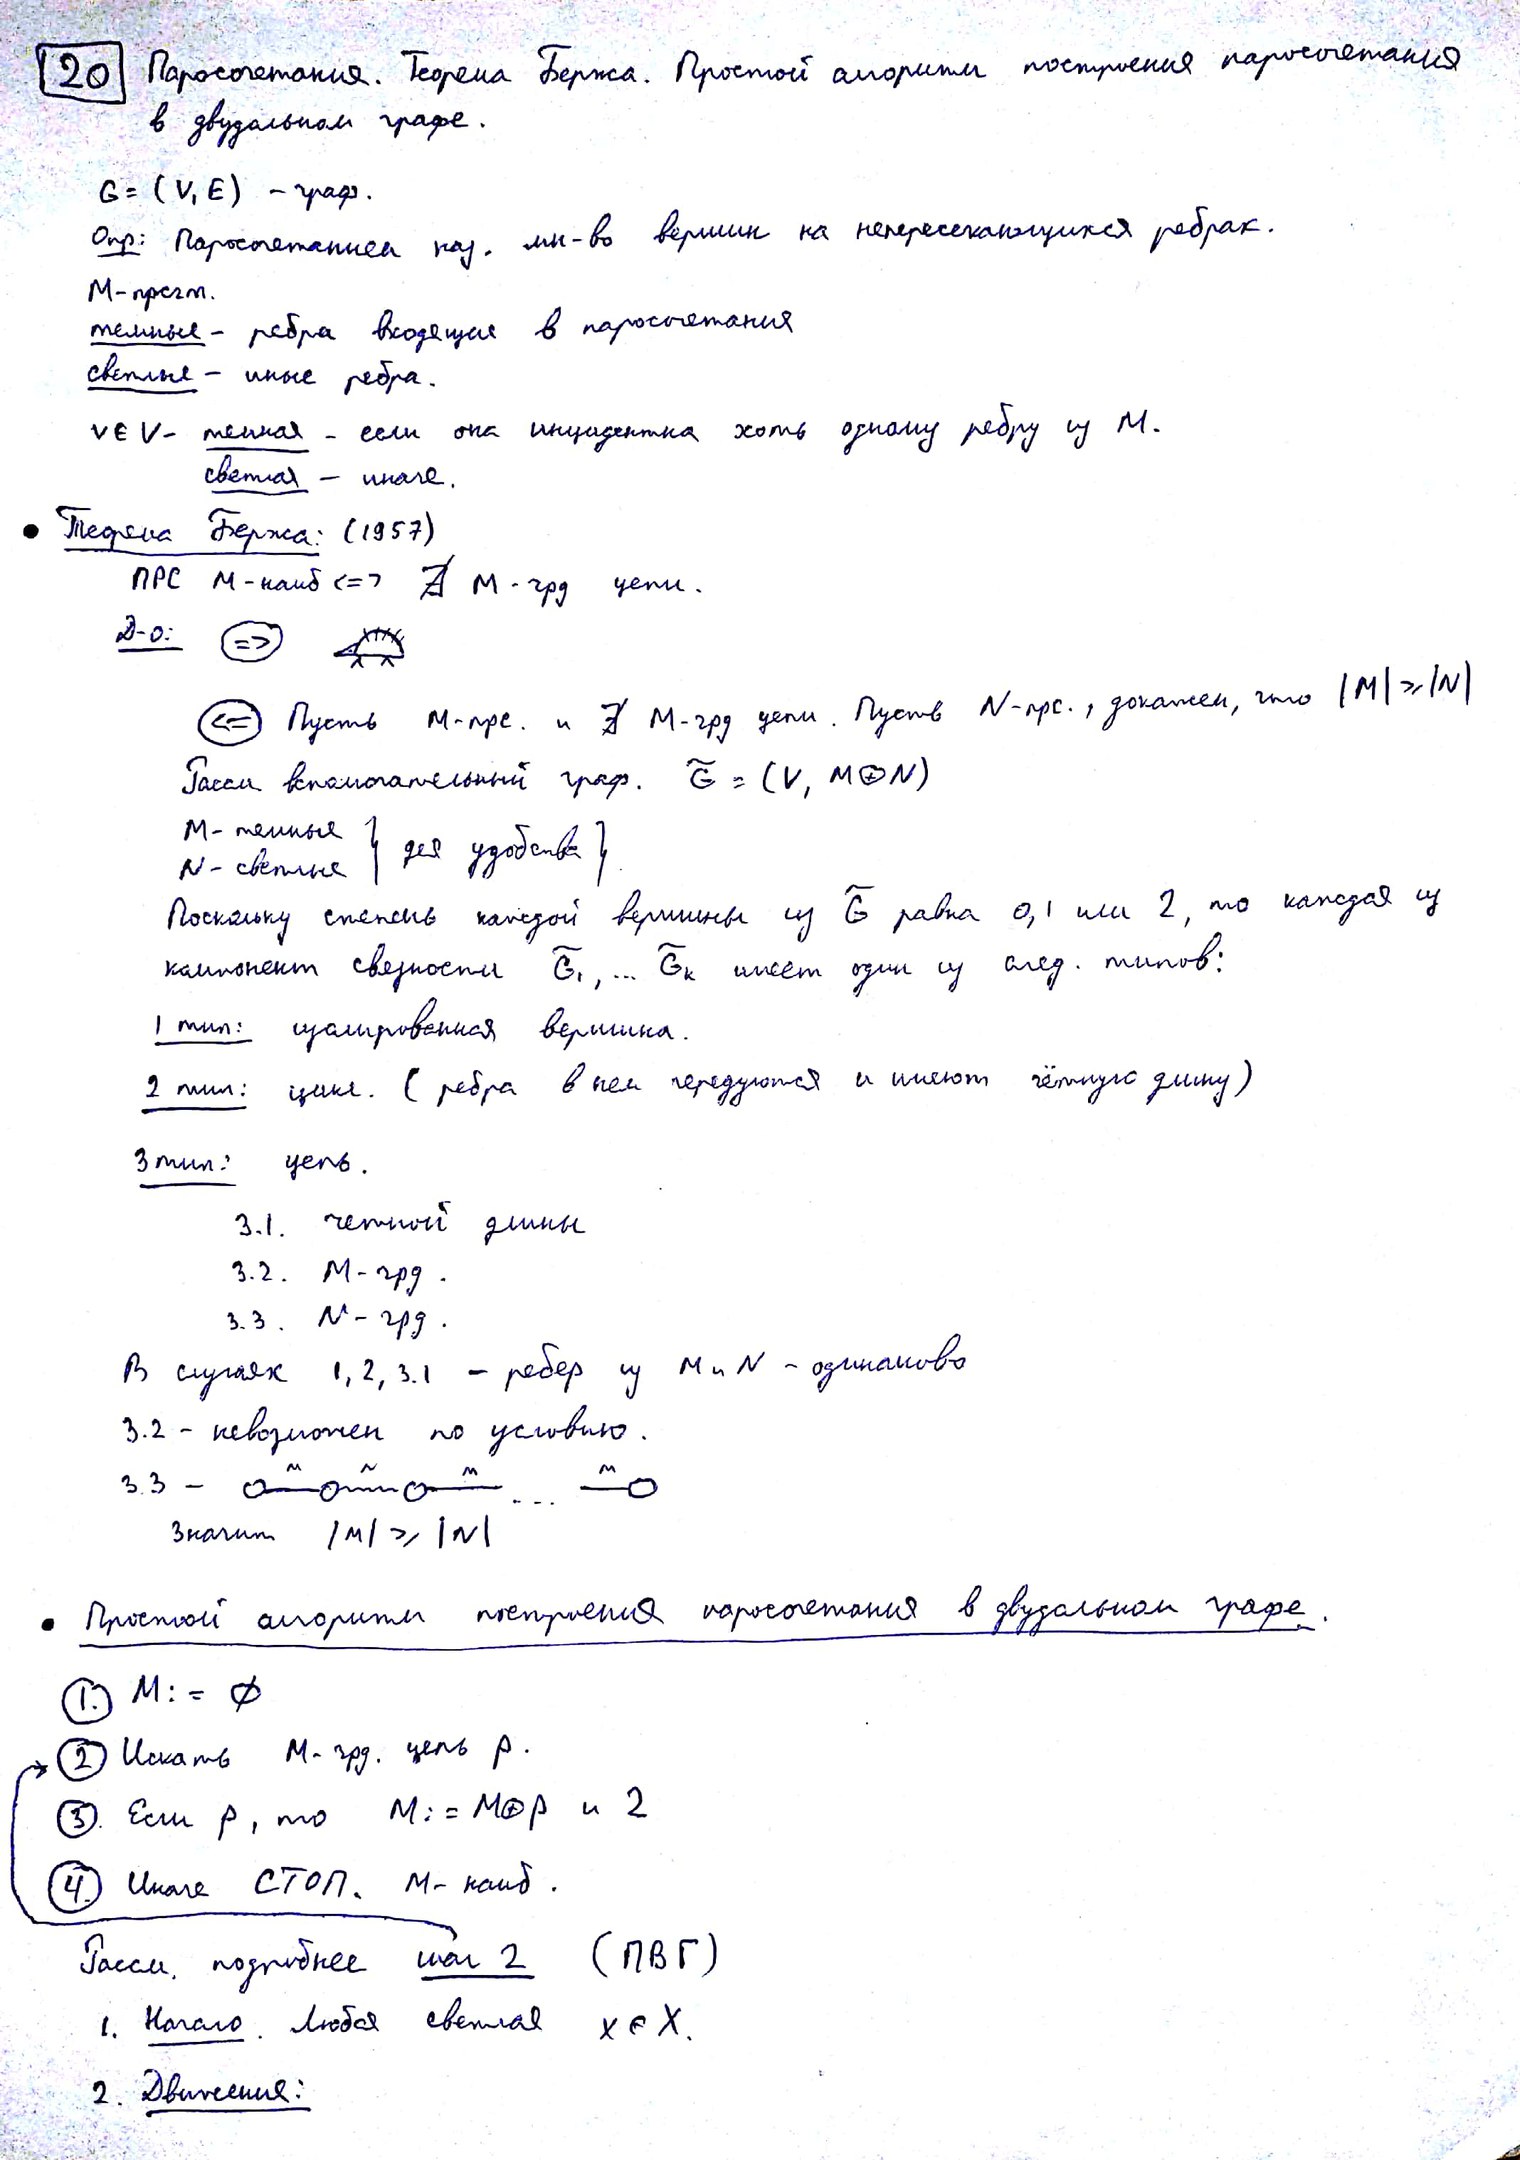 20 Паросочетания. Теорема Бержа. Простой алгоритм построения паросочетания
в двудольном графе.
G = (V, E) - граф.
Опр: Паросочетанием наз. мн-во вершин на непересекающихся ребрах.
M - прсчт.
темные - ребра входящие в паросочетания
светлые - иные ребра.
v ∈ V - темная - если она инцидентна хоть одному ребру из M.
светлая - иначе.
• Теорема Бержа: (1957)
ПРС M - наиб <=> ∄ M - чрд цепи.
Д-о: =>
<= Пусть M - прс. и ∄ M - чрд цепи. Пусть N - прс., докажем, что |M| ⩾ |N|
Рассм. вспомогательный граф. G̃ = (V, M⊕N)
M - темные
N - светлые } для удобства }
Поскольку степень каждой вершины из G̃ равна 0, 1 или 2, то каждая из
компонент связности G̃₁, ... G̃ₖ имеет один из след. типов:
1 тип: изолированная вершина.
2 тип: цикл. (ребра в нем чередуются и имеют чётную длину)
3 тип: цепь.
3.1. четной длины
3.2. M - чрд.
3.3. N - чрд.
В случаях 1, 2, 3.1 - ребер из M и N - одинаково
3.2 - невозможен по условию.
3.3 - M N M ... M
Значит |M| ⩾ |N|
• Простой алгоритм построения паросочетания в двудольном графе.
1. M := ∅
2 Искать M - чрд. цепь P.
3. Если P, то M := M⊕P и 2
4. Иначе СТОП. M - наиб.
Рассм. подробнее шаг 2 (ПВГ)
1. Начало. Любая светлая x ∈ X.
2. Движения: